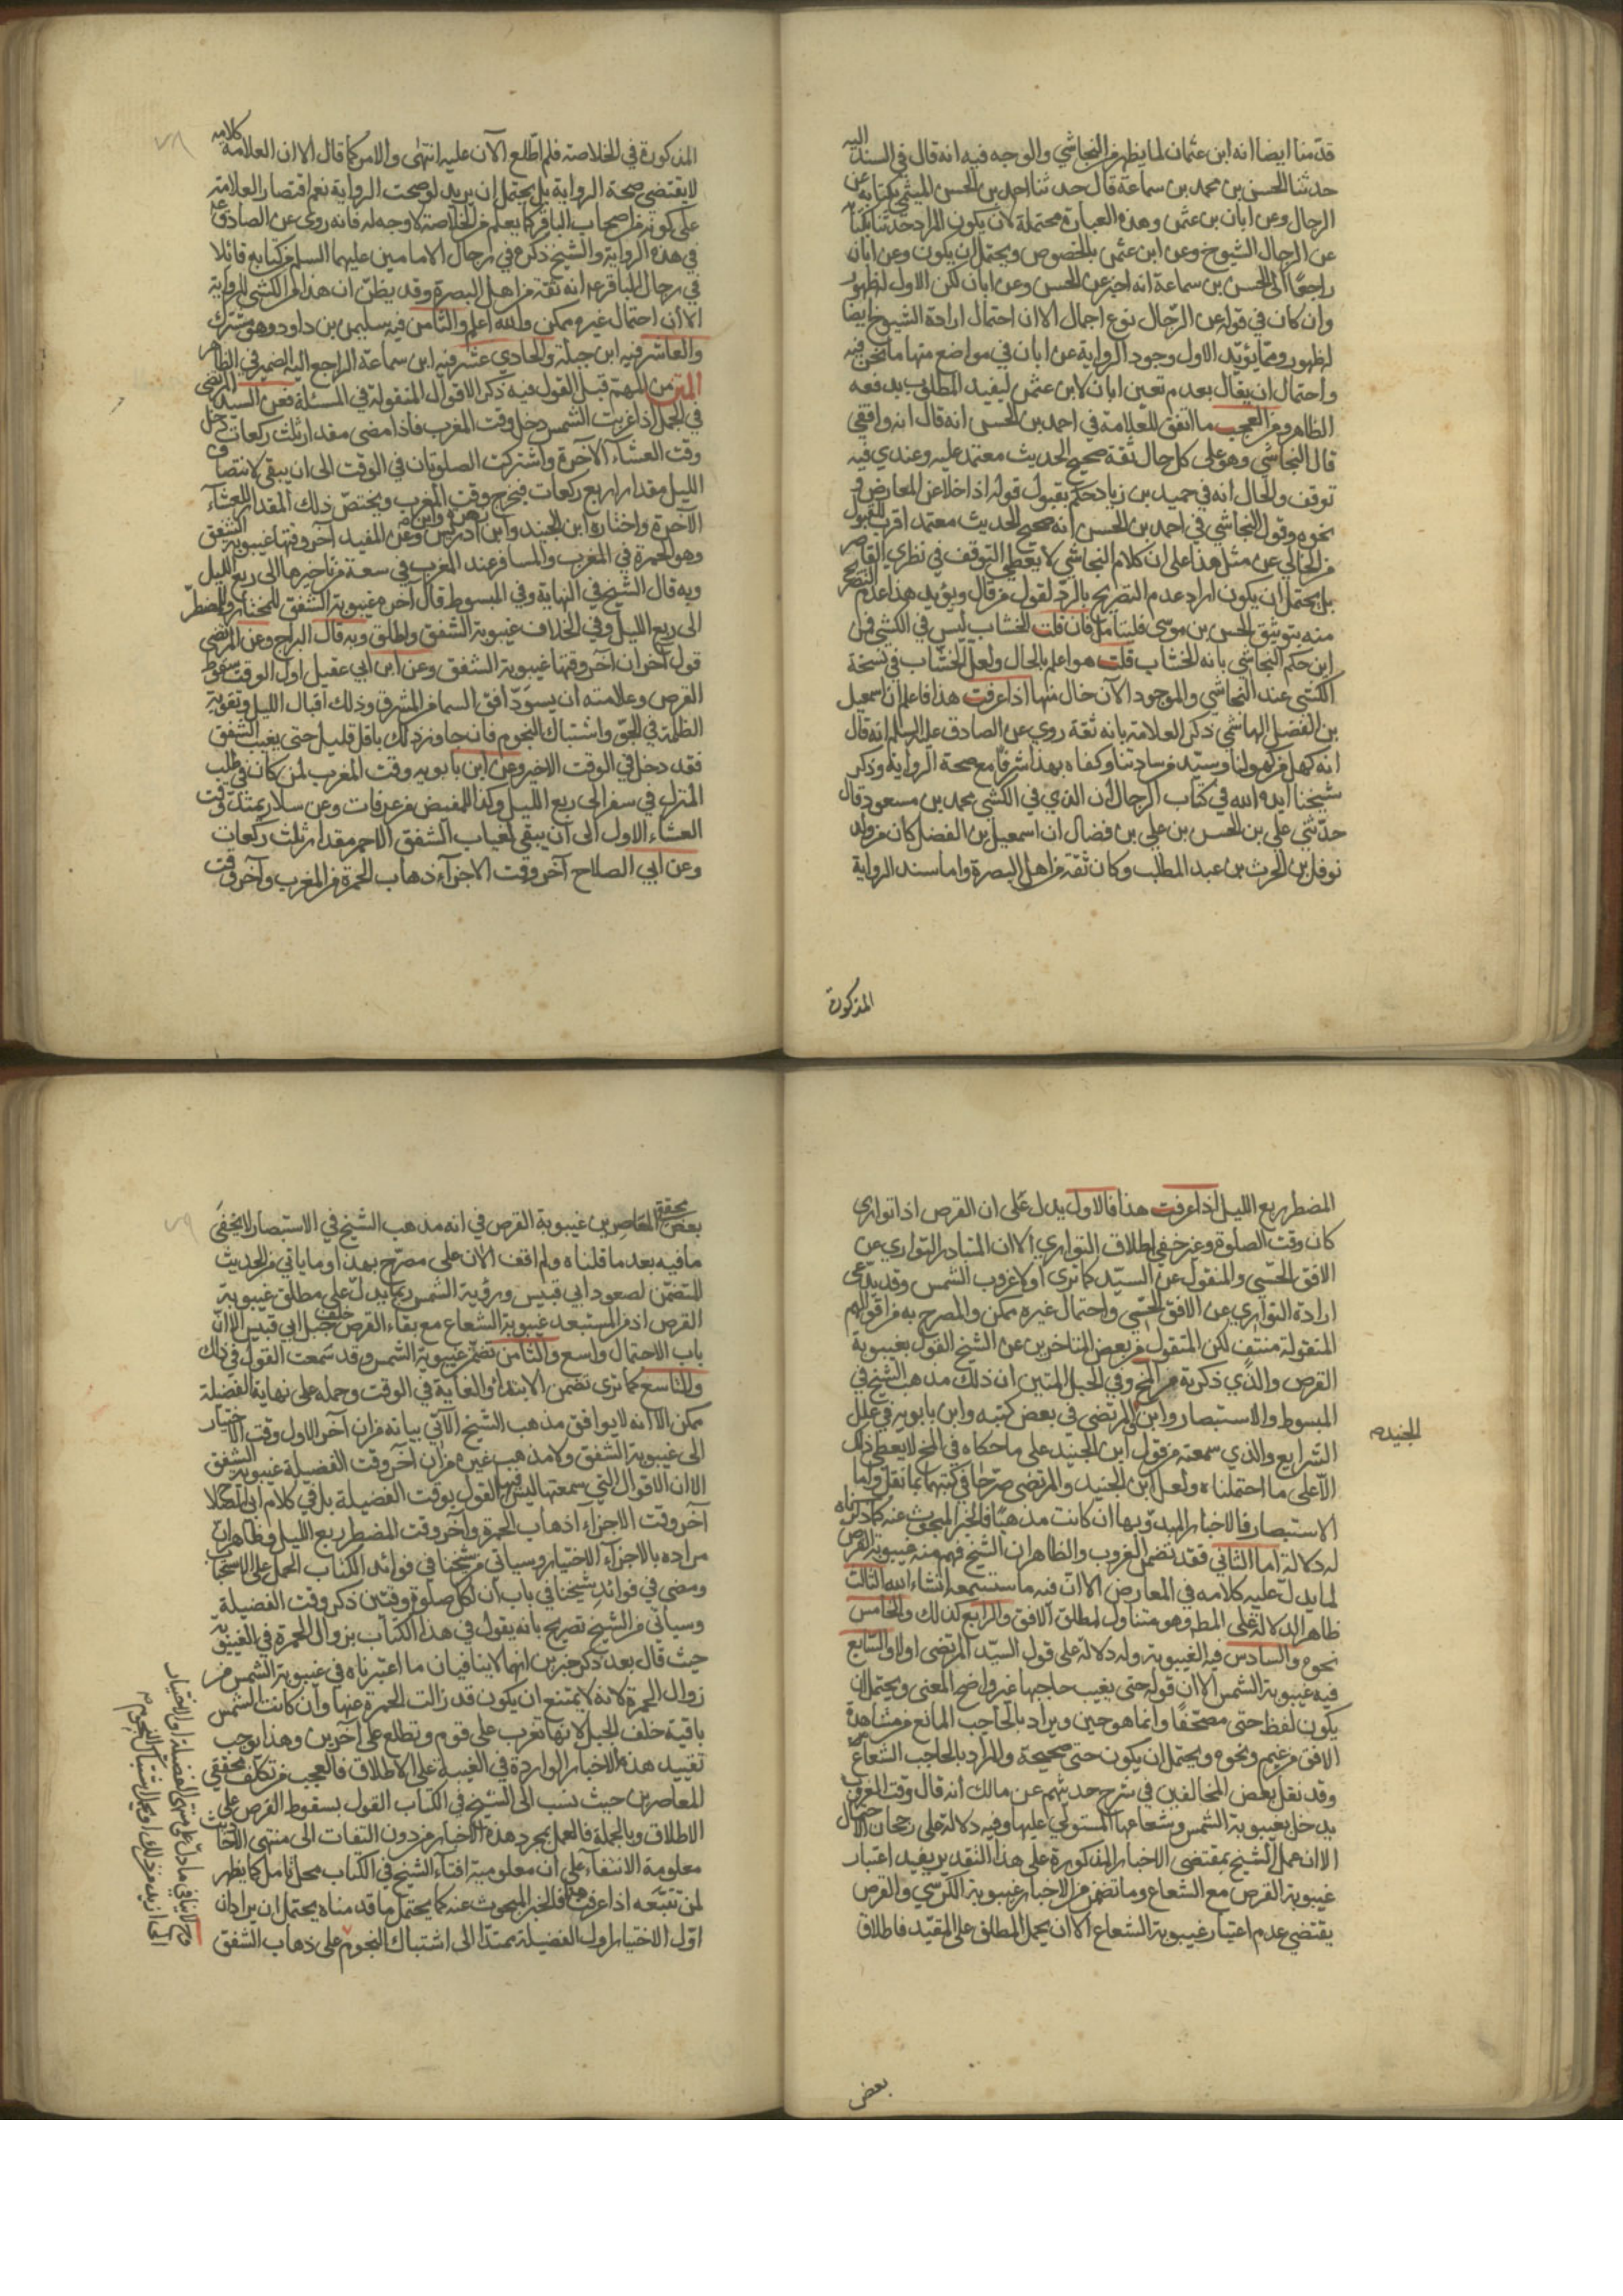 قدّمنا ايضا انه ابن عثمان لما يظهر من النجاشي والوجه فيه انه قال في السند اليه
حدثنا الحسن بن محمد بن سماعة قال حدثنا احمد بن الحسن الميثمي بكتابه عن
الرجال وعن ابان بن عثمن وهذه العبارة محتملة لان يكون المراد حدثنا بكتابه
عن الرجال الشيوخ وعن ابن عثمن بالخصوص ويحتمل ان يكون وعن ابان
راجعا الى الحسن بن سماعة انه اخبر عن الحسن وعن ابان لكن الاول لظهور
وان كان في قوله عن الرجال نوع اجمال الا ان احتمال ارادة الشيوخ ايضا
له ظهور ومما يؤيد الاول وجود الرواية عن ابان في مواضع منها ما نحن فيه
واحتمال ان يقال بعدم تعين ابان لابن عثمن ليفيد المطلوب يدفعه
الظاهر ومن العجب ما اتفق للعلامة في احمد بن الحسن انه قال انه واقفي
قال النجاشي وهو على كل حال ثقة صحيح الحديث معتمد عليه وعندي فيه
توقف والحال انه في حميد بن زياد حكم بقبول قوله اذا خلا عن المعارض و
نحوه وقول النجاشي في احمد بن الحسن انه صحيح الحديث معتمد اقرب للقبول
من الخالي عن مثل هذا على ان كلام النجاشي لا يعطي التوقف في نظري القاصر
بل يحتمل ان يكون اراد عدم التصريح بالرد لقول من قال ويؤيد هذا عدم التصريح
منه بتوثيق الحسن بن موسى فليتامل فان قلت الخشاب ليس في الكشي فمن
اين حكم النجاشي بانه الخشاب قلت هو اعلم بالحال ولعل الخشاب في نسخة
الكشي عند النجاشي والموجود الآن خال منها اذا عرفت هذا فاعلم ان اسمعيل
بن الفضل الهاشمي ذكر العلامة بانه ثقة روي عن الصادق عليه السلم انه قال
انه كهل من كهولنا وسيّد من ساداتنا وكفاه بهذا شرفا مع صحة الرواية وذكر
شيخنا ايده الله في كتاب الرجال ان الذي في الكشي محمد بن مسعود قال
حدّثني علي بن الحسن بن علي بن فضال ان اسمعيل بن الفضل كان من ولد
نوفل بن الحرث بن عبد المطلب وكان ثقة من اهل البصرة واما سند الرواية
المذكورة
المذكورة في الخلاصة فلم اطّلع الآن عليه انتهى والامر كما قال الا ان العلامة كلامه
لا يقتضي صحة الرواية بل يحتمل ان يريد لو صحت الرواية نعم اقتصار العلامة
على كونه من اصحاب الباقر كما يعلم من الخلاصة لا وجه له فانه روى عن الصادق ع
في هذه الرواية والشيخ ذكره في رجال الامامين عليهما السلم من كتابه قائلا
في رجال الباقر ع انه ثقة من اهل البصرة وقد يظنّ ان هذا من الكشي للرواية
الا ان احتمال غيره ممكن والله اعلم والثامن فيه سليمن بن داود وهو مشترك
والعاشر فيه ابن جبلة والحادي عشر فيه ابن سماعة الراجع اليه الضمير في الظاهر
المتن من المهم قبل القول فيه ذكر الاقوال المنقولة في المسئلة فعن السيد المرتضى
في الجمل اذا غربت الشمس دخل وقت المغرب فاذا مضى مقدار ثلث ركعات دخل
وقت العشاء الآخرة واشتركت الصلوتان في الوقت الى ان يبقى لانتصاف
الليل مقدار اربع ركعات فيخرج وقت المغرب ويختصّ ذلك المقدار للعشاء
الآخرة واختاره ابن الجنيد وابن ادريس وعن المفيد آخر وقتها غيبوبة الشفق
وهو الحمرة في المغرب والمسافر عند المغرب في سعة من تاخيرها الى ربع الليل
وبه قال الشيخ في النهاية وفي المبسوط قال آخره غيبوبة الشفق للمختار وللمضطرّ
الى ربع الليل وفي الخلاف غيبوبة الشفق واطلق وبه قال البراج وعن المرتضى
قول آخر ان آخر وقتها غيبوبة الشفق وعن ابن ابي عقيل اول الوقت سقوط
القرص وعلامته ان يسودّ افق السماء من المشرق وذلك اقبال الليل وتقوية
الظلمة في الجوّ واشتباك النجوم فان جاوز ذلك باقل قليل حتى يغيب الشفق
فقد دخل في الوقت الاخير وعن ابن بابويه وقت المغرب لمن كان في طلب
المنزل في سفر الى ربع الليل وكذا للمفيض من عرفات وعن سلار يمتدّ وقت
العشاء الاول الى ان يبقى لغياب الشفق الاحمر مقدار ثلث ركعات
وعن ابي الصلاح آخر وقت الاجزاء ذهاب الحمرة من المغرب وآخر وقت
المضطر ربع الليل اذا عرفت هذا فالاول يدل على ان القرص اذا توارى
كان وقت الصلوة وغير خفي اطلاق التواري الا ان المتبادر التواري عن
الافق الحسّي والمنقول عن السيّد كما ترى اولا غروب الشمس وقد يدّعى
ارادة التواري عن الافق الحسّي واحتمال غيره ممكن والمصرح به من اقوالهم
المنقولة منتف لكن المنقول من بعض المتاخرين عن الشيخ القول بغيبوبة
القرص والذي ذكرته من المخ وفي الحبل المتين ان ذلك مذهب الشيخ في
المبسوط والاستبصار وابن المرتضى في بعض كتبه وابن بابويه في علل
الجنيد
الشرايع والذي سمعته من قول ابن الجنيد على ما حكاه في المخ لا يعطي ذلك
الّا على ما احتملناه ولعل ابن الجنيد والمرتضى صرّحا في كتبهما بما نقل واما
الاستبصار فالاخبار المبدوّ بها ان كانت مذهبا فالخبر المبحوث عنه كما ذكرناه
له دلالة اما الثاني فقد تضمن الغروب والظاهر ان الشيخ فهم منه غيبوبة القرص
لما يدلّ عليه كلامه في المعارض الا انّ فيه ما ستسمعه انشاء الله الثالث
ظاهر الدلالة على المط وهو متناول لمطلق الافق والرابع كذلك والخامس
نحوه والسادس فيه الغيبوبة وله دلالة على قول السيّد المرتضى اولا والسابع
فيه غيبوبة الشمس الا ان قوله حتى يغيب حاجبها غير واضح المعنى ويحتمل ان
يكون لفظ حتى مصحّفا وانما هو حين ويراد بالحاجب المانع من مشاهدة
الافق من غيم ونحوه ويحتمل ان يكون حتى صحيحة والمراد بالحاجب الشعاع
وقد نقل بعض المخالفين في شرح حديثهم عن مالك انه قال وقت المغرب
يدخل بغيبوبة الشمس وشعاعها المستولي عليها وفيه دلالة على رجحان الاحتمال
الا ان عمل الشيخ بمقتضى الاخبار المذكورة على هذا التقدير يفيد اعتبار
غيبوبة القرص مع الشعاع وما تضمن من الاخبار غيبوبة الكرسي والقرص
يقتضي عدم اعتبار غيبوبة الشعاع الا ان يحمل المطلق على المقيّد فاطلاق
بعض
بعض محققي المعاصرين غيبوبة القرص في انه مذهب الشيخ في الاستبصار لا يخفى
ما فيه بعد ما قلناه ولم اقف الآن على مصرّح بهذا وما ياتي من الحديث
المتضمّن لصعود ابي قبيس ورؤية الشمس ربما يدلّ على مطلق غيبوبة
القرص اذ من المستبعد غيبوبة الشعاع مع بقاء القرص خلف جبل ابي قبيس الا انّ
باب الاحتمال واسع والثامن تضمّن غيبوبة الشمس وقد سمعت القول في ذلك
والتاسع كما ترى تضمن الابتداء والغاية في الوقت وحمله على نهاية الفضيلة
ممكن الا انه لا يوافق مذهب الشيخ الآتي بيانه من ان آخر الاول وقت الاختيار
الى غيبوبة الشفق ولا مذهب غيره من ان آخر وقت الفضيلة غيبوبة الشفق
الا ان الاقوال التي سمعتها ليس فيها القول بوقت الفضيلة بل في كلام ابي الصلاح
آخر وقت الاجزاء ذهاب الحمرة وآخر وقت المضطر ربع الليل وظاهر انّ
مراده بالاجزاء الاختيار وسياتي من شيخنا في فوائد الكتاب الحمل على الاستحباب
ومضى في فوائد شيخنا في باب ان لكل صلوة وقتين ذكر وقت الفضيلة
وسيأتي من الشيخ تصريح بانه يقول في هذا الكتاب بزوال الحمرة في الغيبوبة
حيث قال بعد ذكر خبرين انهما لا ينافيان ما اعتبرناه في غيبوبة الشمس من
زوال الحمرة لانه لا يمتنع ان يكون قد زالت الحمرة عنها وان كانت الشمس
باقية خلف الجبل لانها تغرب على قوم وتطلع على آخرين وهذا يوجب
تقييد هذه الاخبار الواردة في الغيبة على الاطلاق فالعجب من تكلف محققي
المعاصرين حيث نسب الى الشيخ في الكتاب القول بسقوط القرص على
الاطلاق وبالجملة فالعمل بمجرد هذه الاخبار من دون التفات الى منتهى الاحاديث
معلومة الانتفاء على ان معلومية افتاء الشيخ في الكتاب محل تامل كما يظهر
لمن تتبّعه اذا عرفت هذا فالخبر المبحوث عنه كما يحتمل ما قدمناه يحتمل ان يراد ان
اوّل الاختيار اول الفضيلة ممتدّا الى اشتباك النجوم على ذهاب الشفق